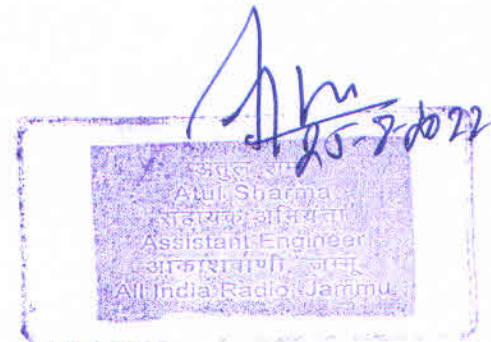 25-8-2022
अतुल शर्मा
Atul Sharma
सहायक अभियन्ता
Assistant Engineer
आकाशवाणी, जम्मू
All India Radio, Jammu